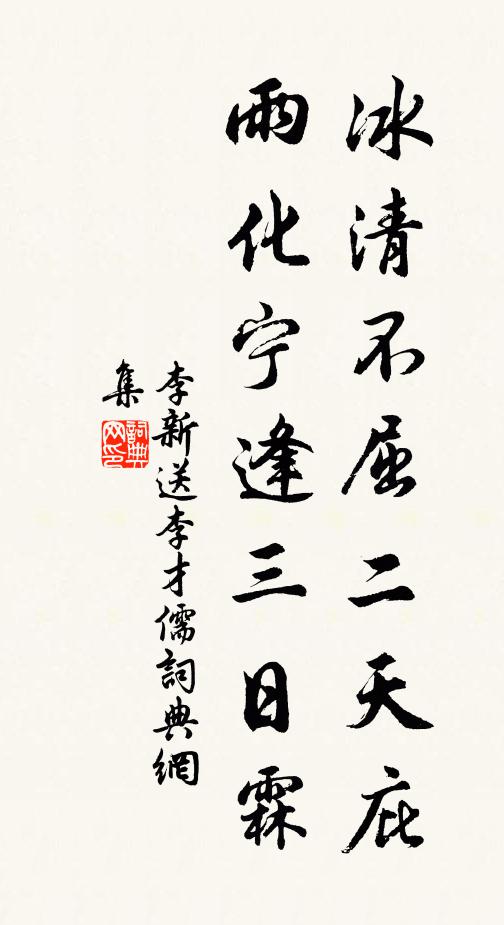 冰清不屈二天庇
雨化宁逢三日霖
李新送李才儒詞典網
集
詞典
网印